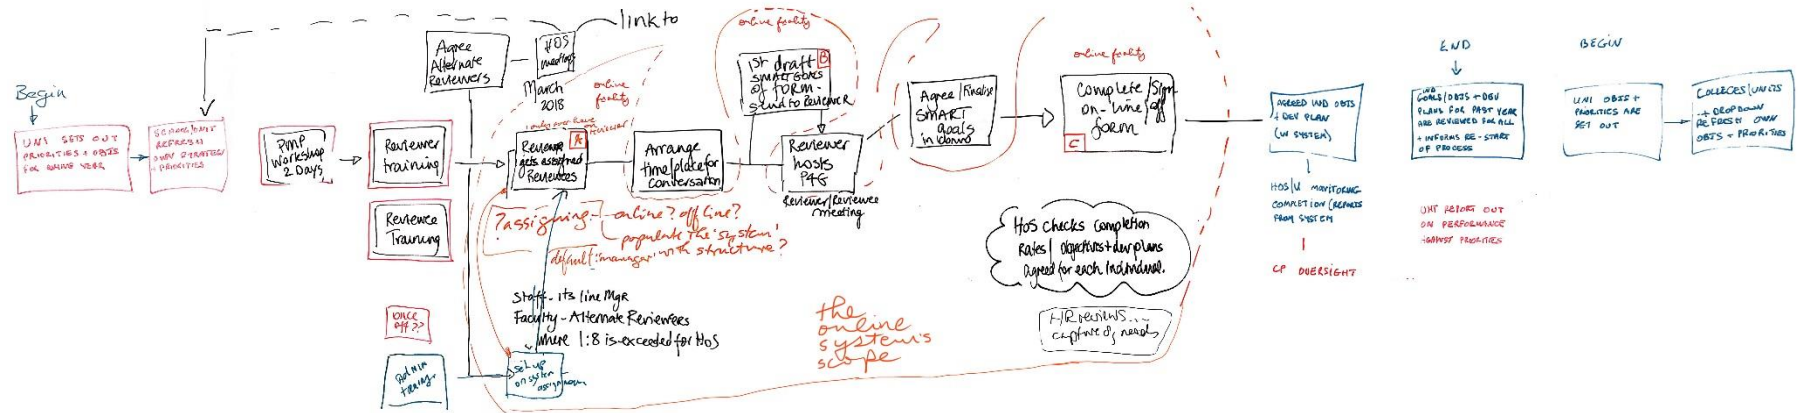 Begin
UNI SETS OUT
PRIORITIES + OBJS
FOR YEAR
SCHOOL/UNIT
REFRESH
OWN STRATEGY
+ PRIORITIES
PMP
Workshop
2 Days
Reviewer
training
Reviewee
Training
ONCE
OFF??
Admin
training
link to
Agree
Alternate
Reviewers
HOS
meetings
March
2018
online
facility
Reviewer
gets assigned
Reviewees
A
Arrange
time/place for
conversation
online facility
1st draft
SMART GOALS
of form -
send to Reviewer
B
Reviewer
hosts
P4G
Reviewer/Reviewee
meeting
Agree/Finalise
SMART
goals
in
online facility
Complete/Sign
on-line/off
form
C
?assigning
online? offline?
populate the 'system'
with structure?
default: 'manager'
Staff - its line Mgr
Faculty - Alternate Reviewers
where 1:8 is exceeded for HoS
Set up
on system
the
online
system's
scope
HoS checks completion
Rates/ objectives + dev plans
agreed for each individual.
HR reviews...
capture needs
AGREED IND OBJS
+ DEV PLAN
(IN SYSTEM)
HOS/U MONITORING
COMPLETION (REPORTS
FROM SYSTEM)
CP OVERSIGHT
END
IND
GOALS/OBJS + DEV
PLANS FOR PAST YEAR
ARE REVIEWED FOR ALL
+ INFORMS RE-START
OF PROCESS
UNI REPORT OUT
ON PERFORMANCE
AGAINST PRIORITIES
BEGIN
UNI OBJS +
PRIORITIES ARE
SET OUT
COLLEGES/UNITS
DROPDOWN
REFRESH OWN
OBJS + PRIORITIES